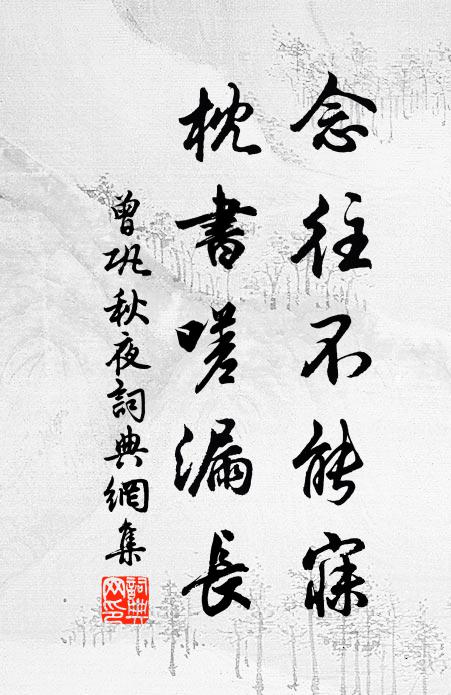 念往不能寐
枕書嗟漏長
曾巩秋夜詞典網集
詞典
网印